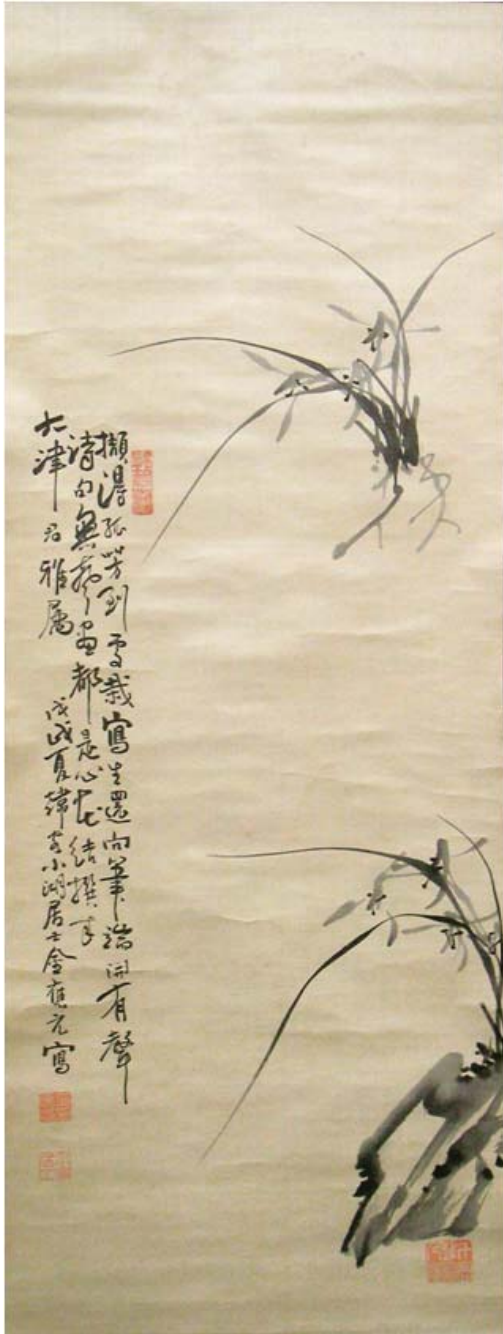 擷得孤芳到處栽寫生還向筆端開有聲
詩句無聲畫都是心花結撰来
大津君雅属
戊戌夏韓客小湖居士金應元寫